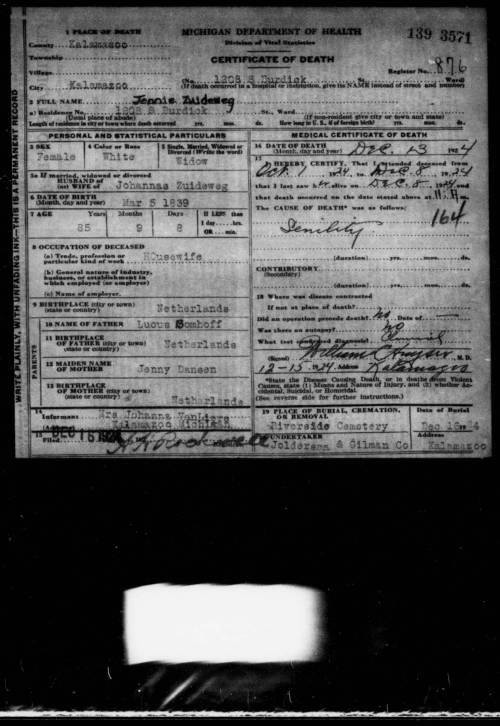 1 PLACE OF DEATH
MICHIGAN DEPARTMENT OF HEALTH
Division of Vital Statistics
139 3571
County Kalamazoo
CERTIFICATE OF DEATH
Township
Register No. 876
Village
City Kalamazoo
(No. 1208 S Burdick St. Ward)
(If death occurred in a hospital or institution, give its NAME instead of street and number)
2 FULL NAME Jennie Zuideweg
(a) Residence No. 1208 S Burdick St., Ward.
(Usual place of abode)
(If non-resident give city or town and state)
Length of residence in city or town where death occurred yrs. mos. ds. How long in U. S., if of foreign birth? yrs. mos. ds.
PERSONAL AND STATISTICAL PARTICULARS
3 SEX
Female
4 Color or Race
White
5 Single, Married, Widowed or Divorced (Write the word)
Widow
5a If married, widowed or divorced
HUSBAND of
(or) WIFE of Johannas Zuideweg
6 DATE OF BIRTH
(Month, day and year) Mar 5 1839
7 AGE Years Months Days If LESS than
1 day hrs.
OR min.
85 9 8
8 OCCUPATION OF DECEASED
(a) Trade, profession or particular kind of work HOusewife
(b) General nature of industry, business, or establishment in which employed (or employer)
(c) Name of employer
9 BIRTHPLACE (city or town)
(state or country) Netherlands
PARENTS
10 NAME OF FATHER Lucus Bomhoff
11 BIRTHPLACE OF FATHER (city or town)
(state or country) Netherlands
12 MAIDEN NAME OF MOTHER Jenny Dansen
13 BIRTHPLACE OF MOTHER (city or town)
(state or country) Netherlands
14
Informant Mrs Johanna
(Address) Kalamazoo Michigan
15
Filed DEC 15 1924
WRITE PLAINLY, WITH UNFADING INK—THIS IS A PERMANENT RECORD
MEDICAL CERTIFICATE OF DEATH
16 DATE OF DEATH
(Month, day and year) Dec. 13 1924
17
I HEREBY CERTIFY, That I attended deceased from
Oct. 1 1924, to Dec. 8, 1924
that I last saw h alive on Dec. 8 1924 and
that death occurred on the date stated above at m.
The CAUSE OF DEATH* was as follows:
164
Senility
(duration) yrs. mos. ds.
CONTRIBUTORY
(Secondary)
(duration) yrs. mos. ds.
18 Where was disease contracted
If not at place of death?
Did an operation precede death? No. Date of
Was there an autopsy? No
What test confirmed diagnosis? Clinical
(Signed) William M. D.
12-15 1924 Address Kalamazoo
*State the Disease Causing Death, or in deaths from Violent Causes, state (1) Means and Nature of Injury, and (2) whether Accidental, Suicidal, or Homicidal.
(See reverse side for further instructions.)
19 PLACE OF BURIAL, CREMATION, OR REMOVAL
Riverside Cemetery
Date of Burial
Dec 16 1924
20 UNDERTAKER
Joldersma & Gilman Co
Address
Kalamazoo